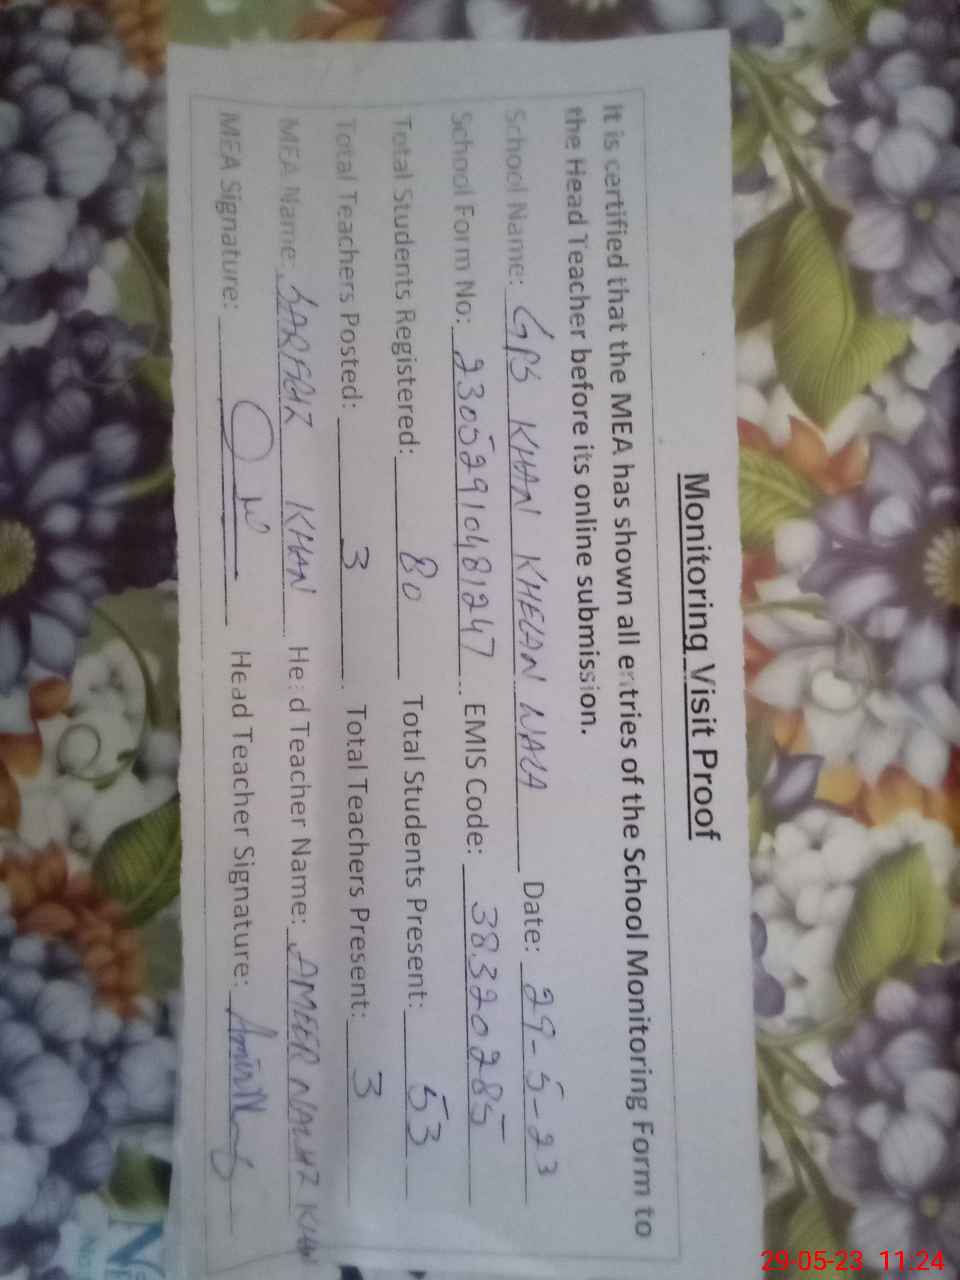 Monitoring Visit Proof
It is certified that the MEA has shown all entries of the School Monitoring Form to
the Head Teacher before its online submission.
School Name: GPS KHAN KHELAN WALA Date: 29-5-23
School Form No: 23052910481247. EMIS Code: 38320285
Total Students Registered: 80 Total Students Present: 53
Total Teachers Posted: 3. Total Teachers Present: 3
MEA Name: SARFRAZ KHAN Head Teacher Name: AMEER NAWAZ KHAN
MEA Signature: Head Teacher Signature:
29-05-23 11:24